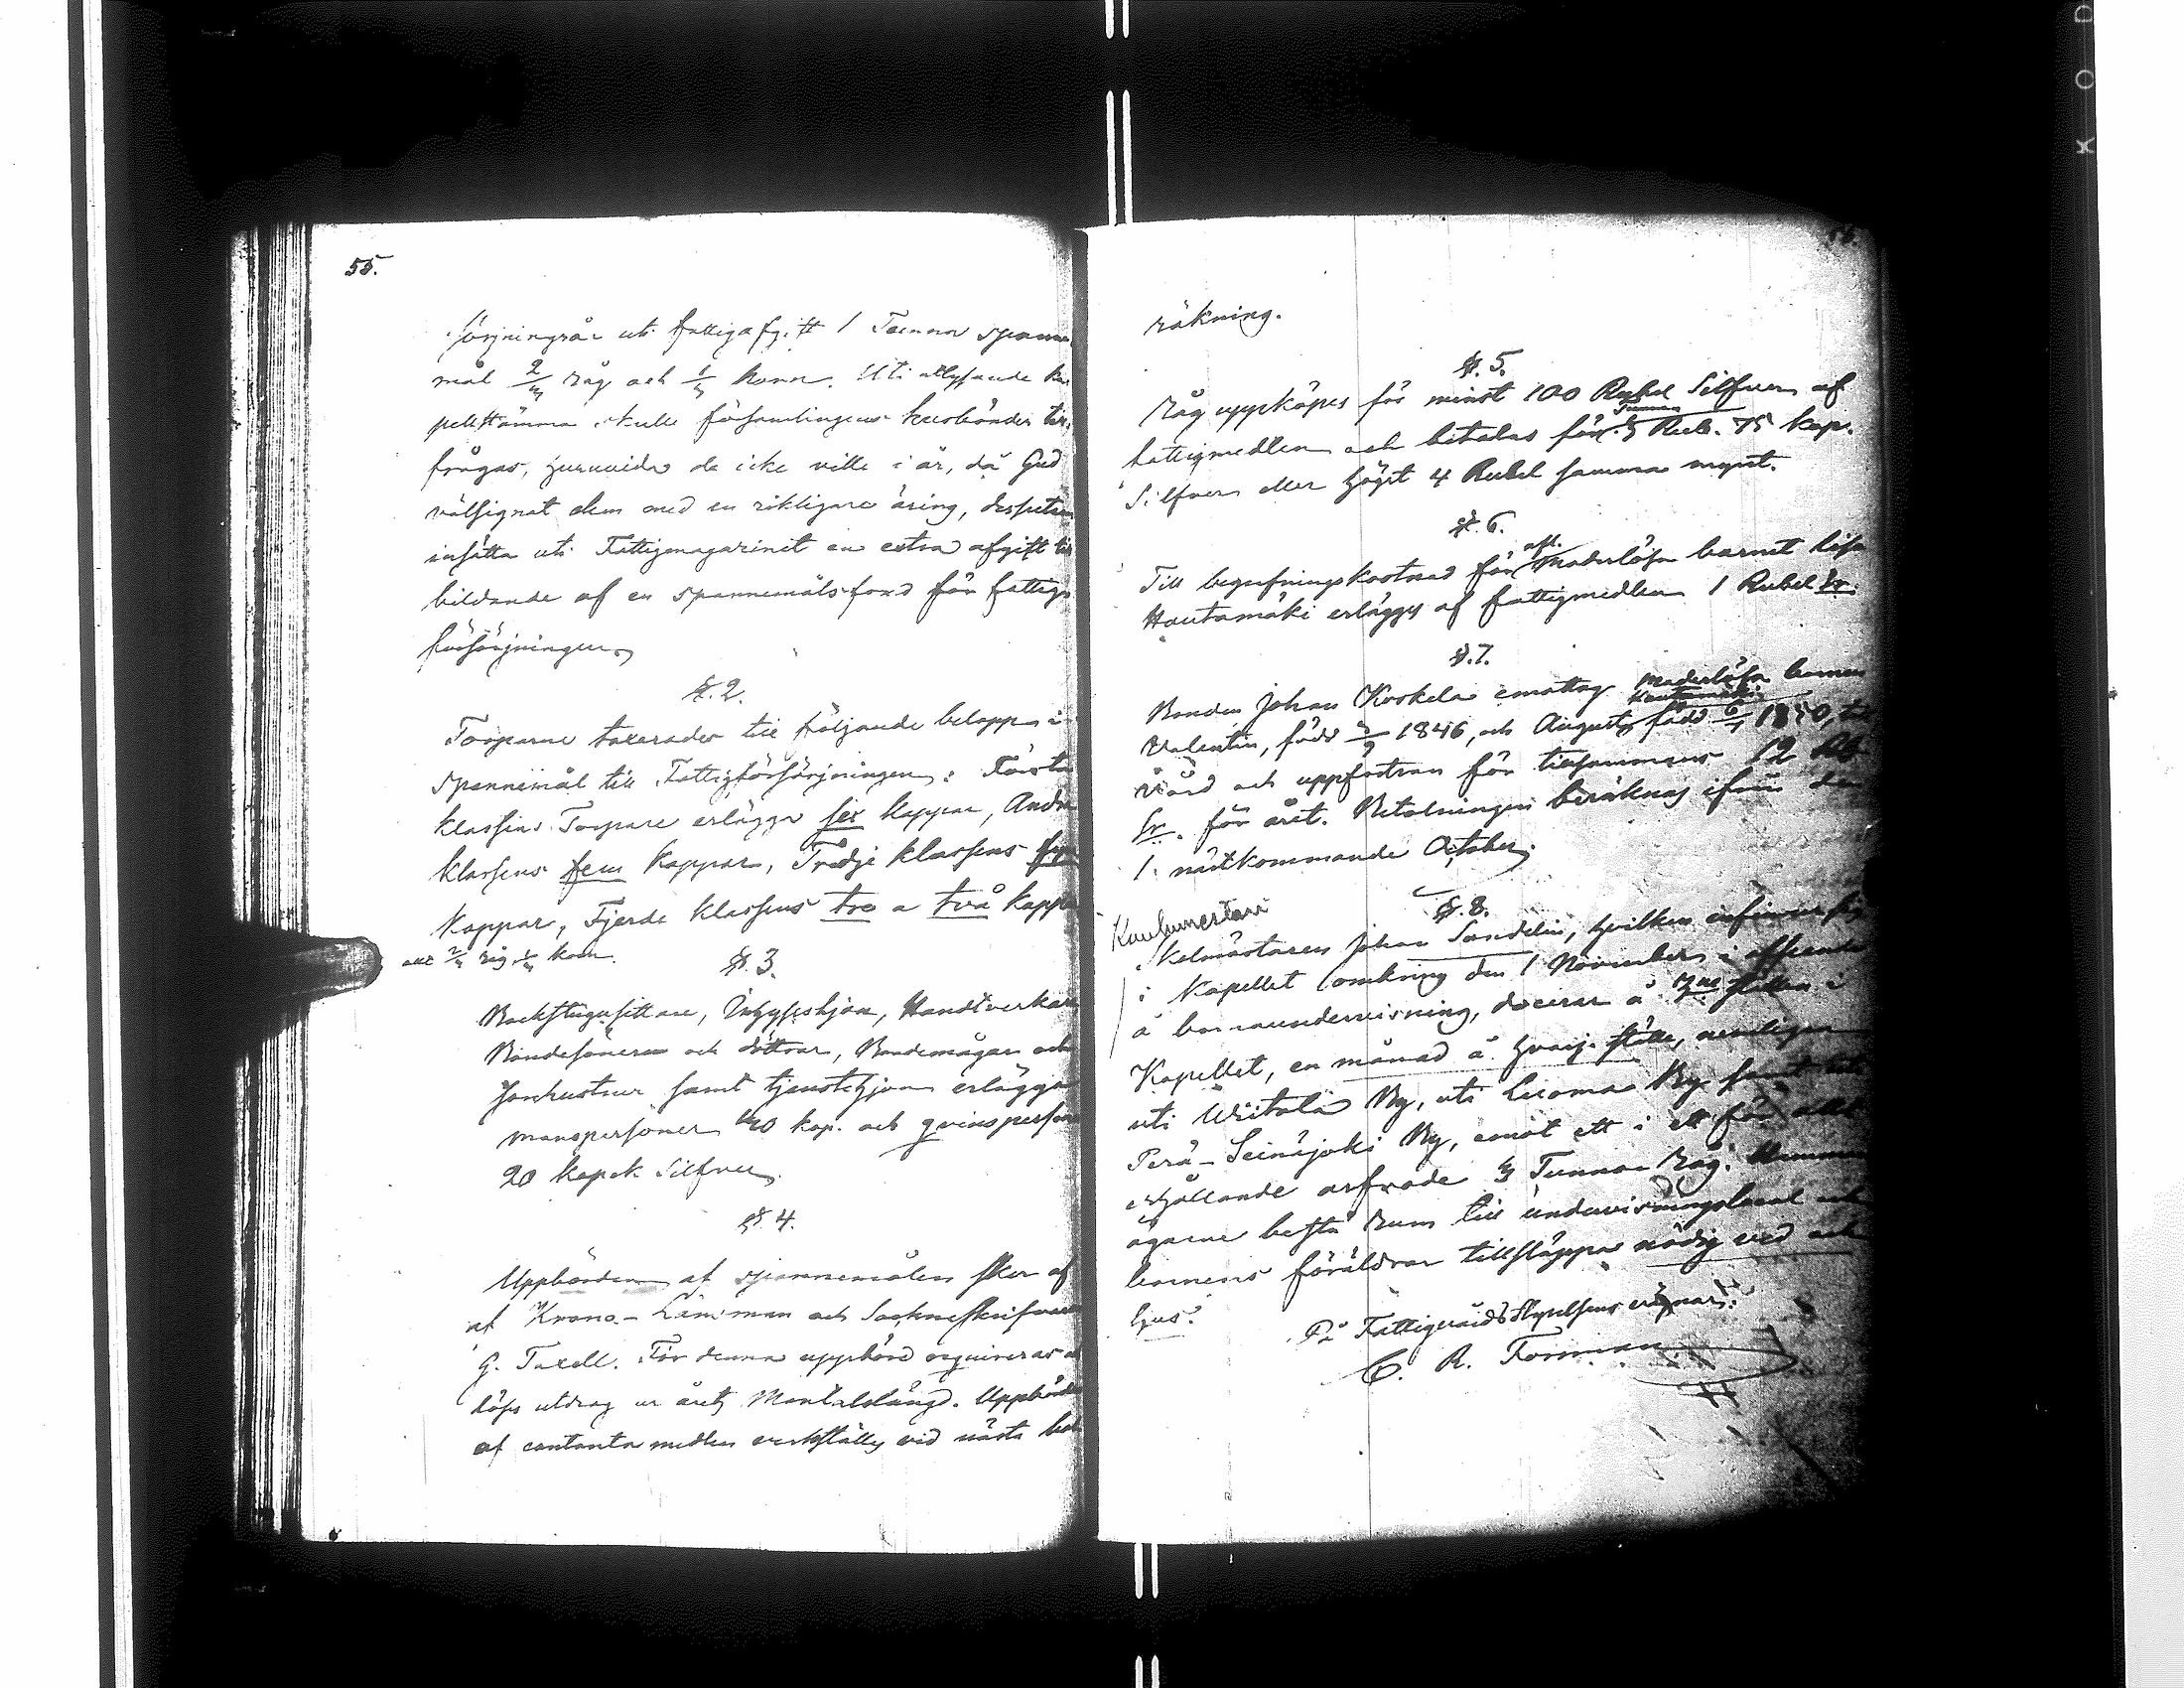 55.
sörjningsår uti fattigafgift 1 Tunna spanne
mål 2/3 råg och 1/3 korn. Uti utlysande ka
pellstämma skulle församlingens husbönder till
frågas, huruvida de icke ville i år, då Gud
välsignat dem med en rikligare äring, dessutom
insätta uti Fattigmagazinet en extra afgift till
bildande af en spannemålsfond för fattig
försörjningen.
§. 2.
Torparne taxerades till följande belopp i
spannemål till Fattigförsörjningen: Första
klassens Torpare erlägga sex kappar, Andra
klassens fem kappar, Tredje klassens fyra
kappar, Fjerde klassens tre a två kappar
allt 2/3 råg 1/3 korn.
§. 3.
Backstugusittare, Inhyseshjon, Handtverkare
Bondesöner och döttrar, Bondemågar och
Sonhustrur samt tjenstehjon erlägga
manspersoner 40 kop. och qvinspersoner
20 kopek Silfver.
§. 4.
Uppbörden af spannemålen sker af
af Krono-Länsman och Sockneskrifvaren
G. Taxell. För denna uppbörd requireras
utdrag ur årets Mantalslängd. Uppbörden
af contanta medlen verkställes vid nästa
räkning.
§. 5.
Råg uppköpes för minst 100 Rubel Silfver af
fattigmedlen och betalas för Tunnan 3 Rub. 75 kop.
Silfver eller högst 4 Rubel samma mynt.
§. 6.
Till begrafningskostnad för afl. Moderlösa barnet Lisa
Hautamäki erlägges af fattigmedlen 1 Rubel Sr.
§. 7.
Bonden Johan Koskela emottog Moderlösa barnen
Hautamäki
Valentin, född 1846, och August, född 1850, till
vård och uppfostran för tillsammans 12 Rb
Sr. för året. Betalningen beräknas ifrån den
1. nästkommande October.
§. 8.
Skolmästaren Johan Sandelin, hvilken infinner sig
i Kapellet omkring den 1 November i afseende
å barnaundervisning, docerar å 3ne ställen i
Kapellet, en månad å hvarje ställe, nemligen
uti Wiitala By, uti Luoma By samt uti
Perä-Seinäjoki By, emot ett i ett för allt
erhållande arfvode 3 Tunnor Råg. Hemmans
ägarne bestå rum till undervisningslocal och
barnens föräldrar tillsläppa nödig ved och
ljus.
På Fattigvårds Styrelsens vägnar:
C. R. Forsman